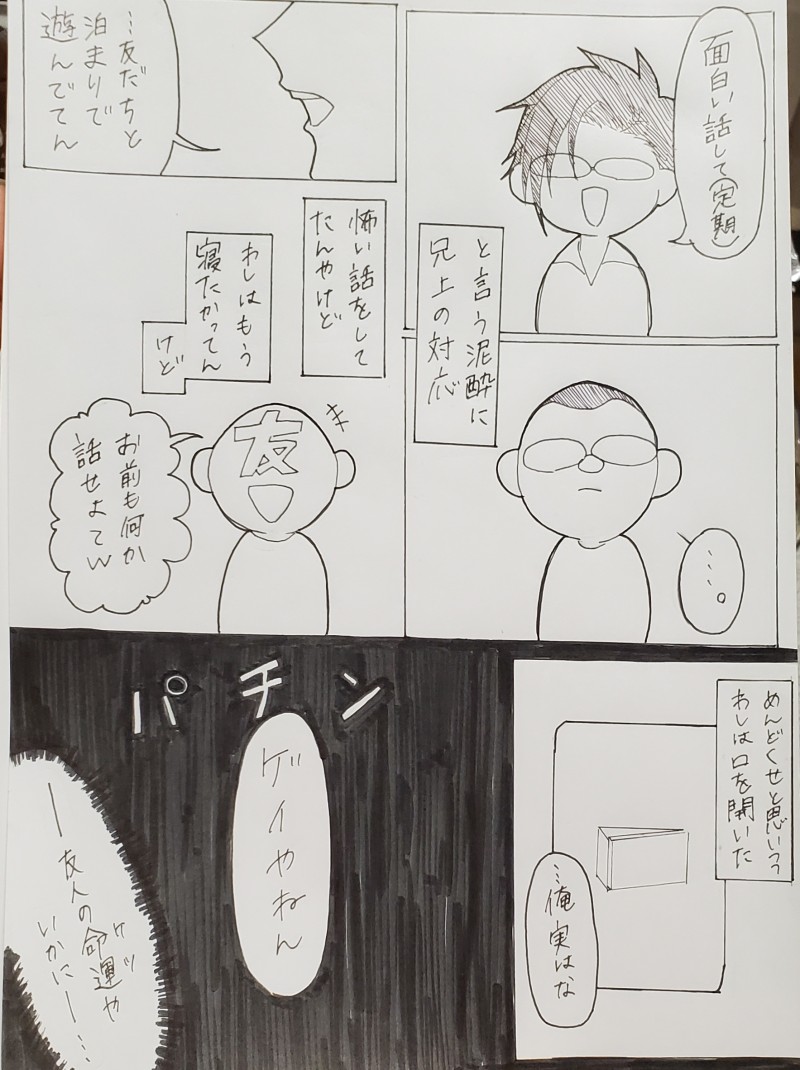 面白い話して(定期)
と言う泥酔に
兄上の対応
…。
…友だちと
泊まりで
遊んでてん
怖い話をして
たんやけど
わしはもう
寝たかってん
けど
友
お前も何か
話せよてw
めんどくせと思いつつ
わしは口を開いた
…俺実はな
パチン
ゲイやねん
ー友人の命運や
ケツ
いかにー…